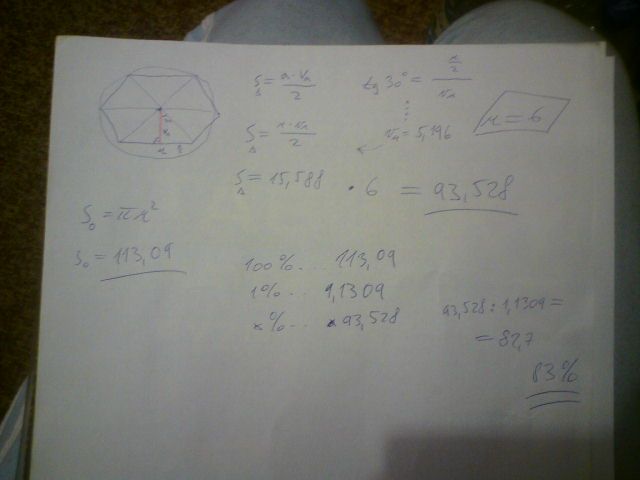 S△ = a·vₐ / 2
tg 30° = x/2 / vₓ
S△ = x·vₓ / 2
vₓ = 5,196
x = 6
S△ = 15,588 · 6 = 93,528
S₀ = πx²
S₀ = 113,09
100% ... 113,09
1% ... 1,1309
x% ... 93,528
93,528 : 1,1309 =
= 82,7
83%